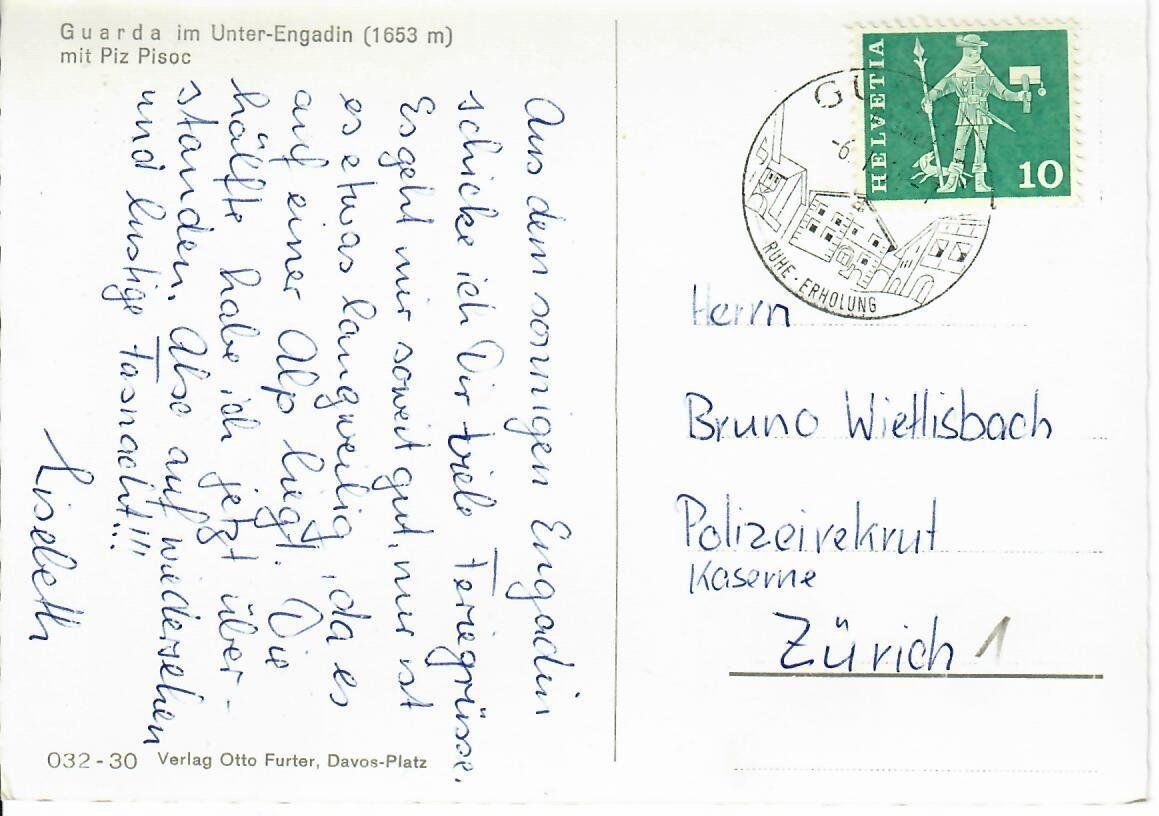 Guarda im Unter-Engadin (1653 m)
mit Piz Pisoc
Aus dem sonnigen Engadin
schicke ich Dir viele Feriegrüsse.
Es geht mir soweit gut, nur ist
es etwas langweilig, da es
auf einer Alp liegt. Die
hälfte habe ich jetzt über-
standen. Also auf wiedersehen
und lustige Fasnacht!!!
Liseleth
032-30 Verlag Otto Furter, Davos-Platz
HELVETIA
10
RUHE - ERHOLUNG
Herrn
Bruno Wietlisbach
Polizeirekrut
Kaserne
Zürich 1